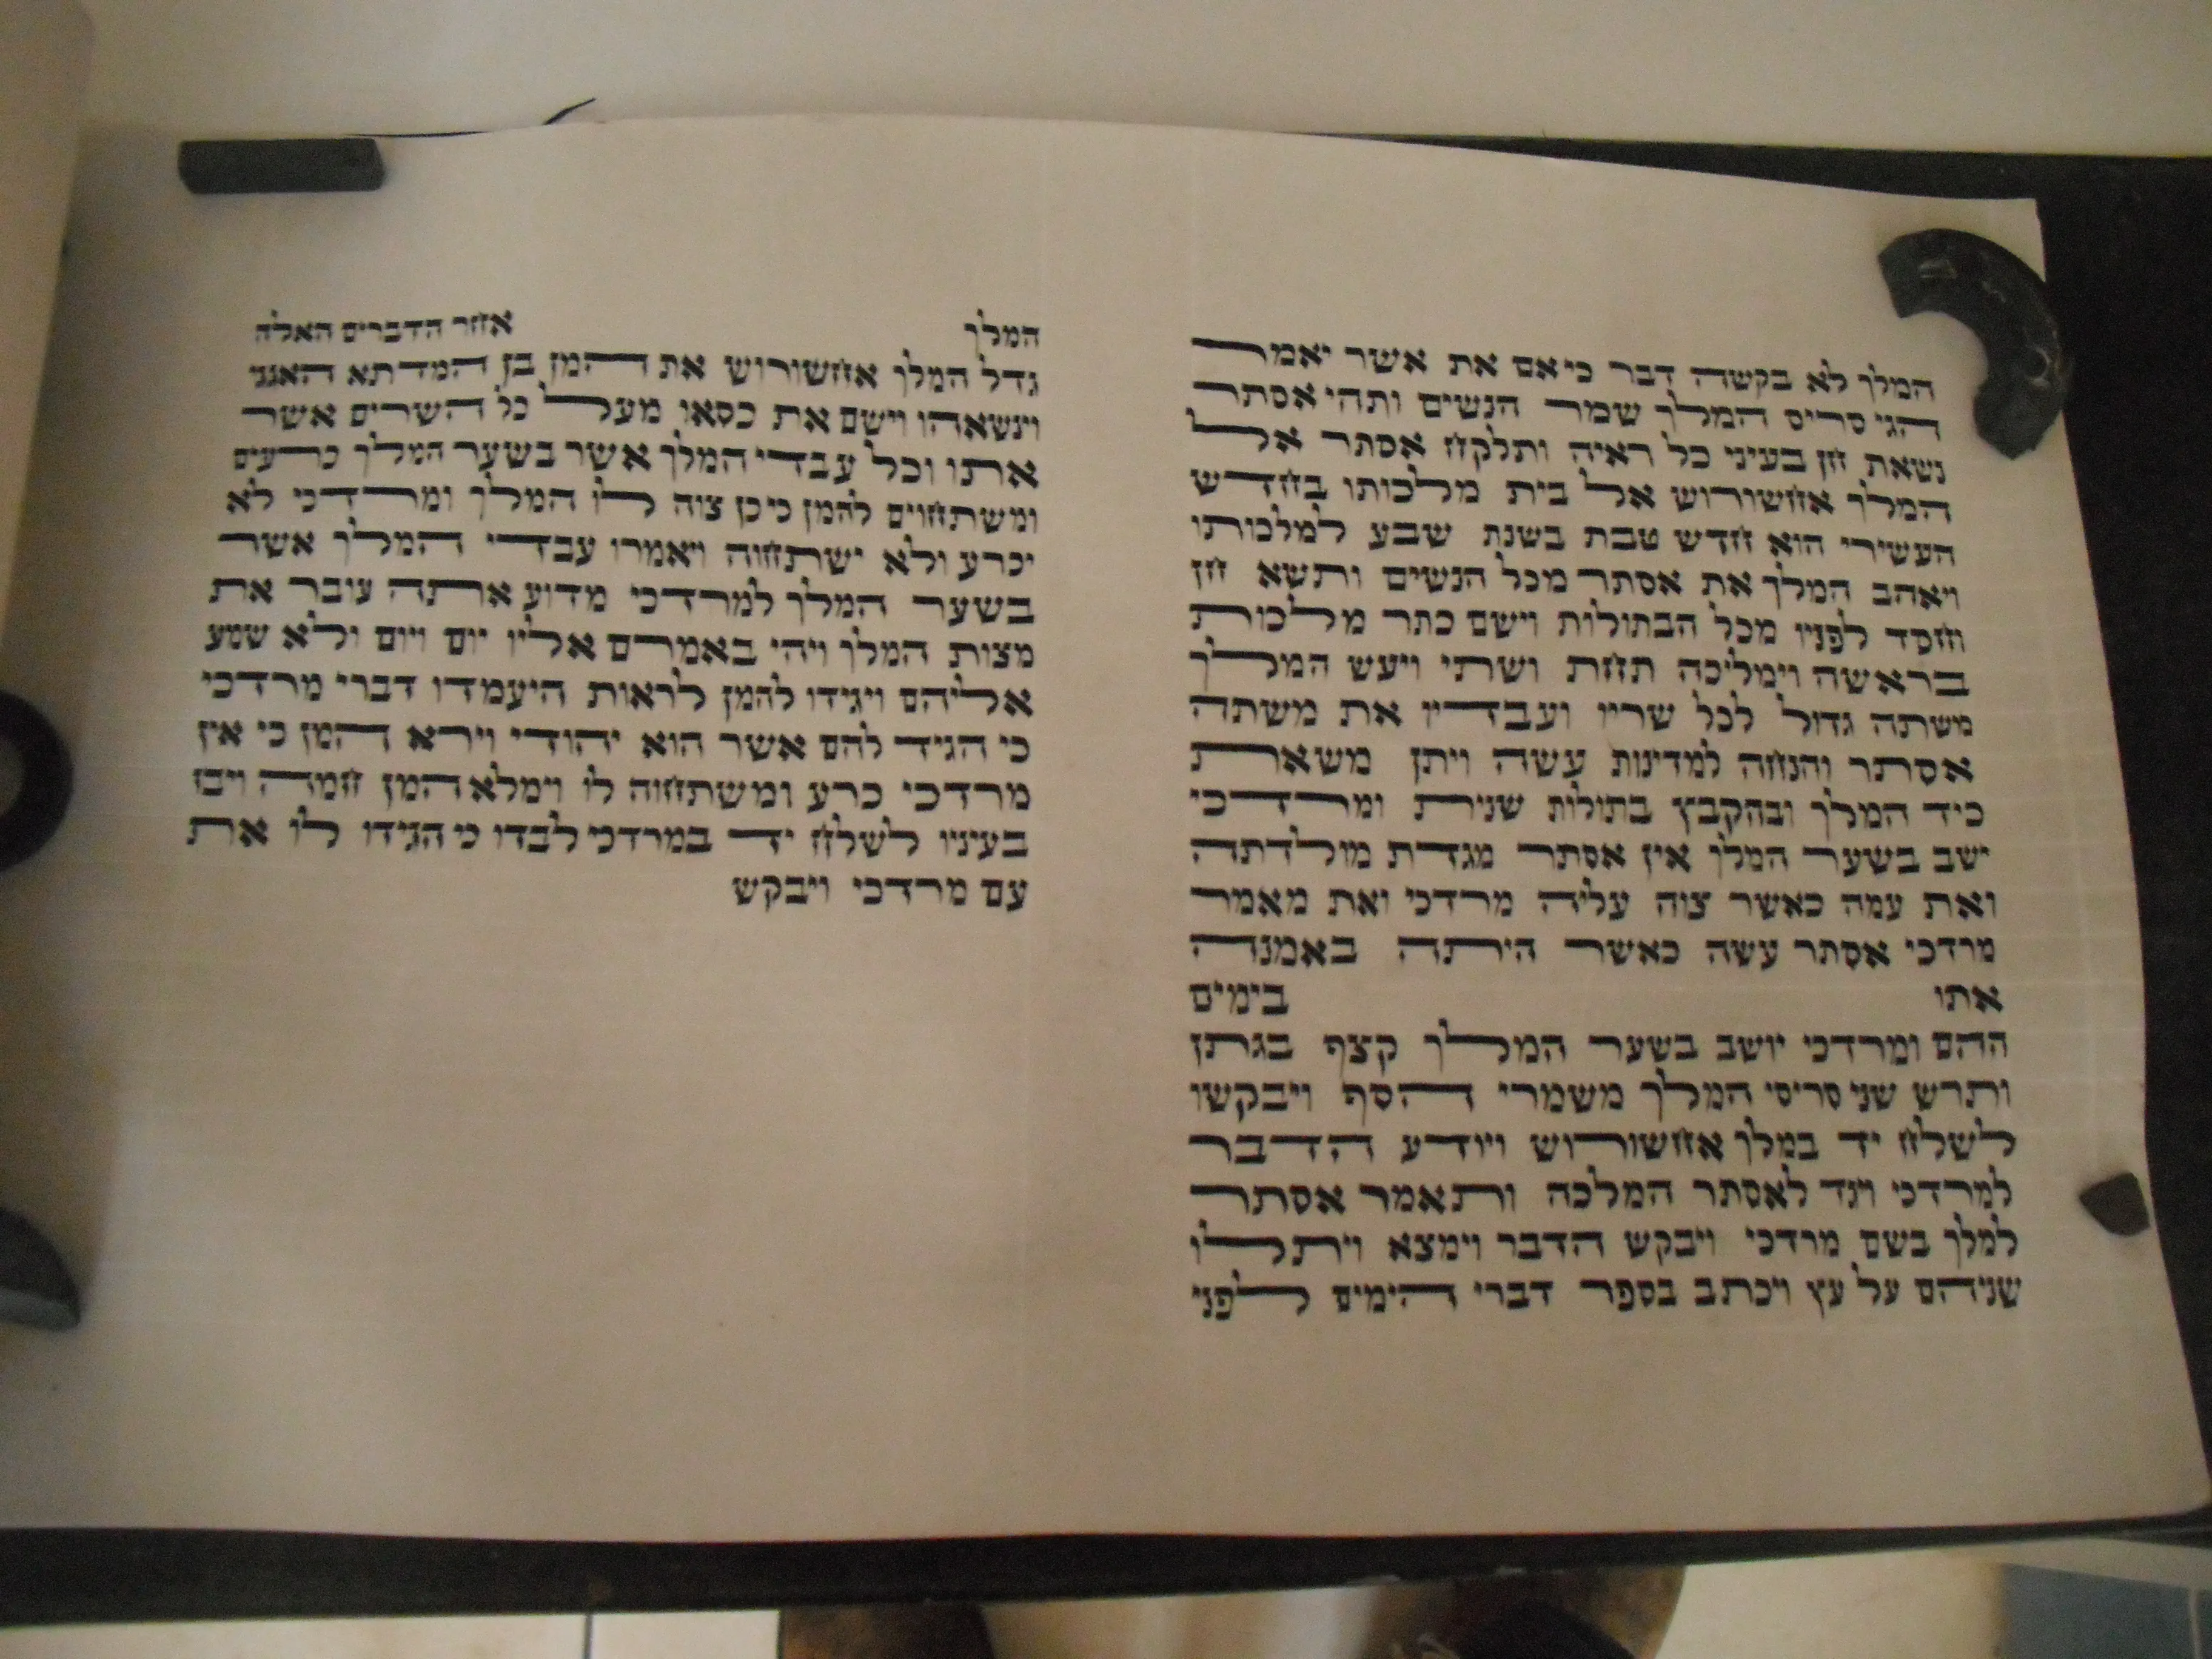 המלך לא בקשה דבר כי אם את אשר יאמר
הגי סריס המלך שמר הנשים ותהי אסתר
נשאת חן בעיני כל ראיה ותלקח אסתר אל
המלך אחשורוש אל בית מלכותו בחדש
העשירי הוא חדש טבת בשנת שבע למלכותו
ויאהב המלך את אסתר מכל הנשים ותשא חן
וחסד לפניו מכל הבתולות וישם כתר מלכות
בראשה וימליכה תחת ושתי ויעש המלך
משתה גדול לכל שריו ועבדיו את משתה
אסתר והנחה למדינות עשה ויתן משאת
כיד המלך ובהקבץ בתולות שנית ומרדכי
ישב בשער המלך אין אסתר מגדת מולדתה
ואת עמה כאשר צוה עליה מרדכי ואת מאמר
מרדכי אסתר עשה כאשר היתה באמנה
אתו בימים
ההם ומרדכי יושב בשער המלך קצף בגתן
ותרש שני סריסי המלך משמרי הסף ויבקשו
לשלח יד במלך אחשורוש ויודע הדבר
למרדכי ויגד לאסתר המלכה ותאמר אסתר
למלך בשם מרדכי ויבקש הדבר וימצא ויתלו
שניהם על עץ ויכתב בספר דברי הימים לפני
המלך אחר הדברים האלה
גדל המלך אחשורוש את המן בן המדתא האגגי
וינשאהו וישם את כסאו מעל כל השרים אשר
אתו וכל עבדי המלך אשר בשער המלך כרעים
ומשתחוים להמן כי כן צוה לו המלך ומרדכי לא
יכרע ולא ישתחוה ויאמרו עבדי המלך אשר
בשער המלך למרדכי מדוע אתה עובר את
מצות המלך ויהי באמרם אליו יום ויום ולא שמע
אליהם ויגידו להמן לראות היעמדו דברי מרדכי
כי הגיד להם אשר הוא יהודי וירא המן כי אין
מרדכי כרע ומשתחוה לו וימלא המן חמה ויבז
בעיניו לשלח יד במרדכי לבדו כי הגידו לו את
עם מרדכי ויבקש